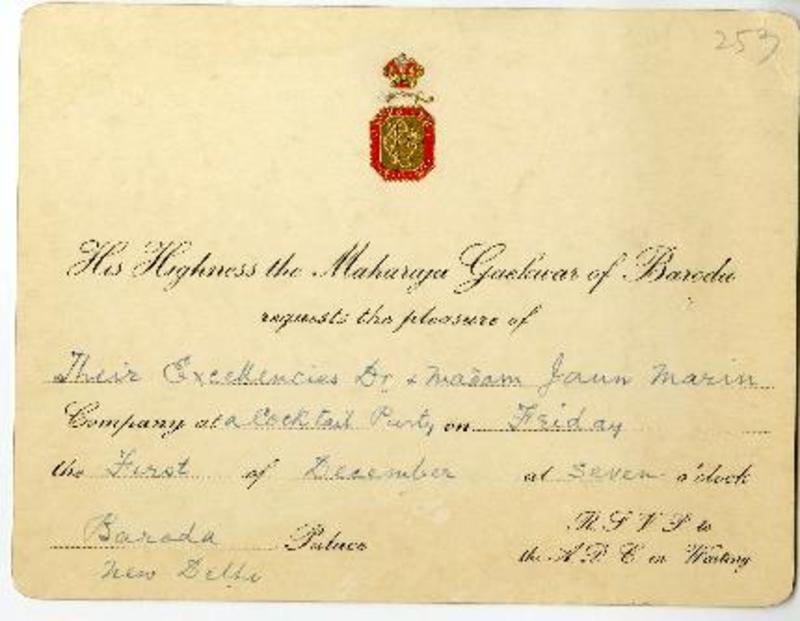 253
His Highness the Maharaja Gaekwar of Baroda
requests the pleasure of
Their Excellencies Dr. & Madam Jaun Marin
Company at a Cocktail Party on Friday
the First of December at seven o'clock
Baroda Palace
New Delhi
R S V P to
the A D C in Waiting